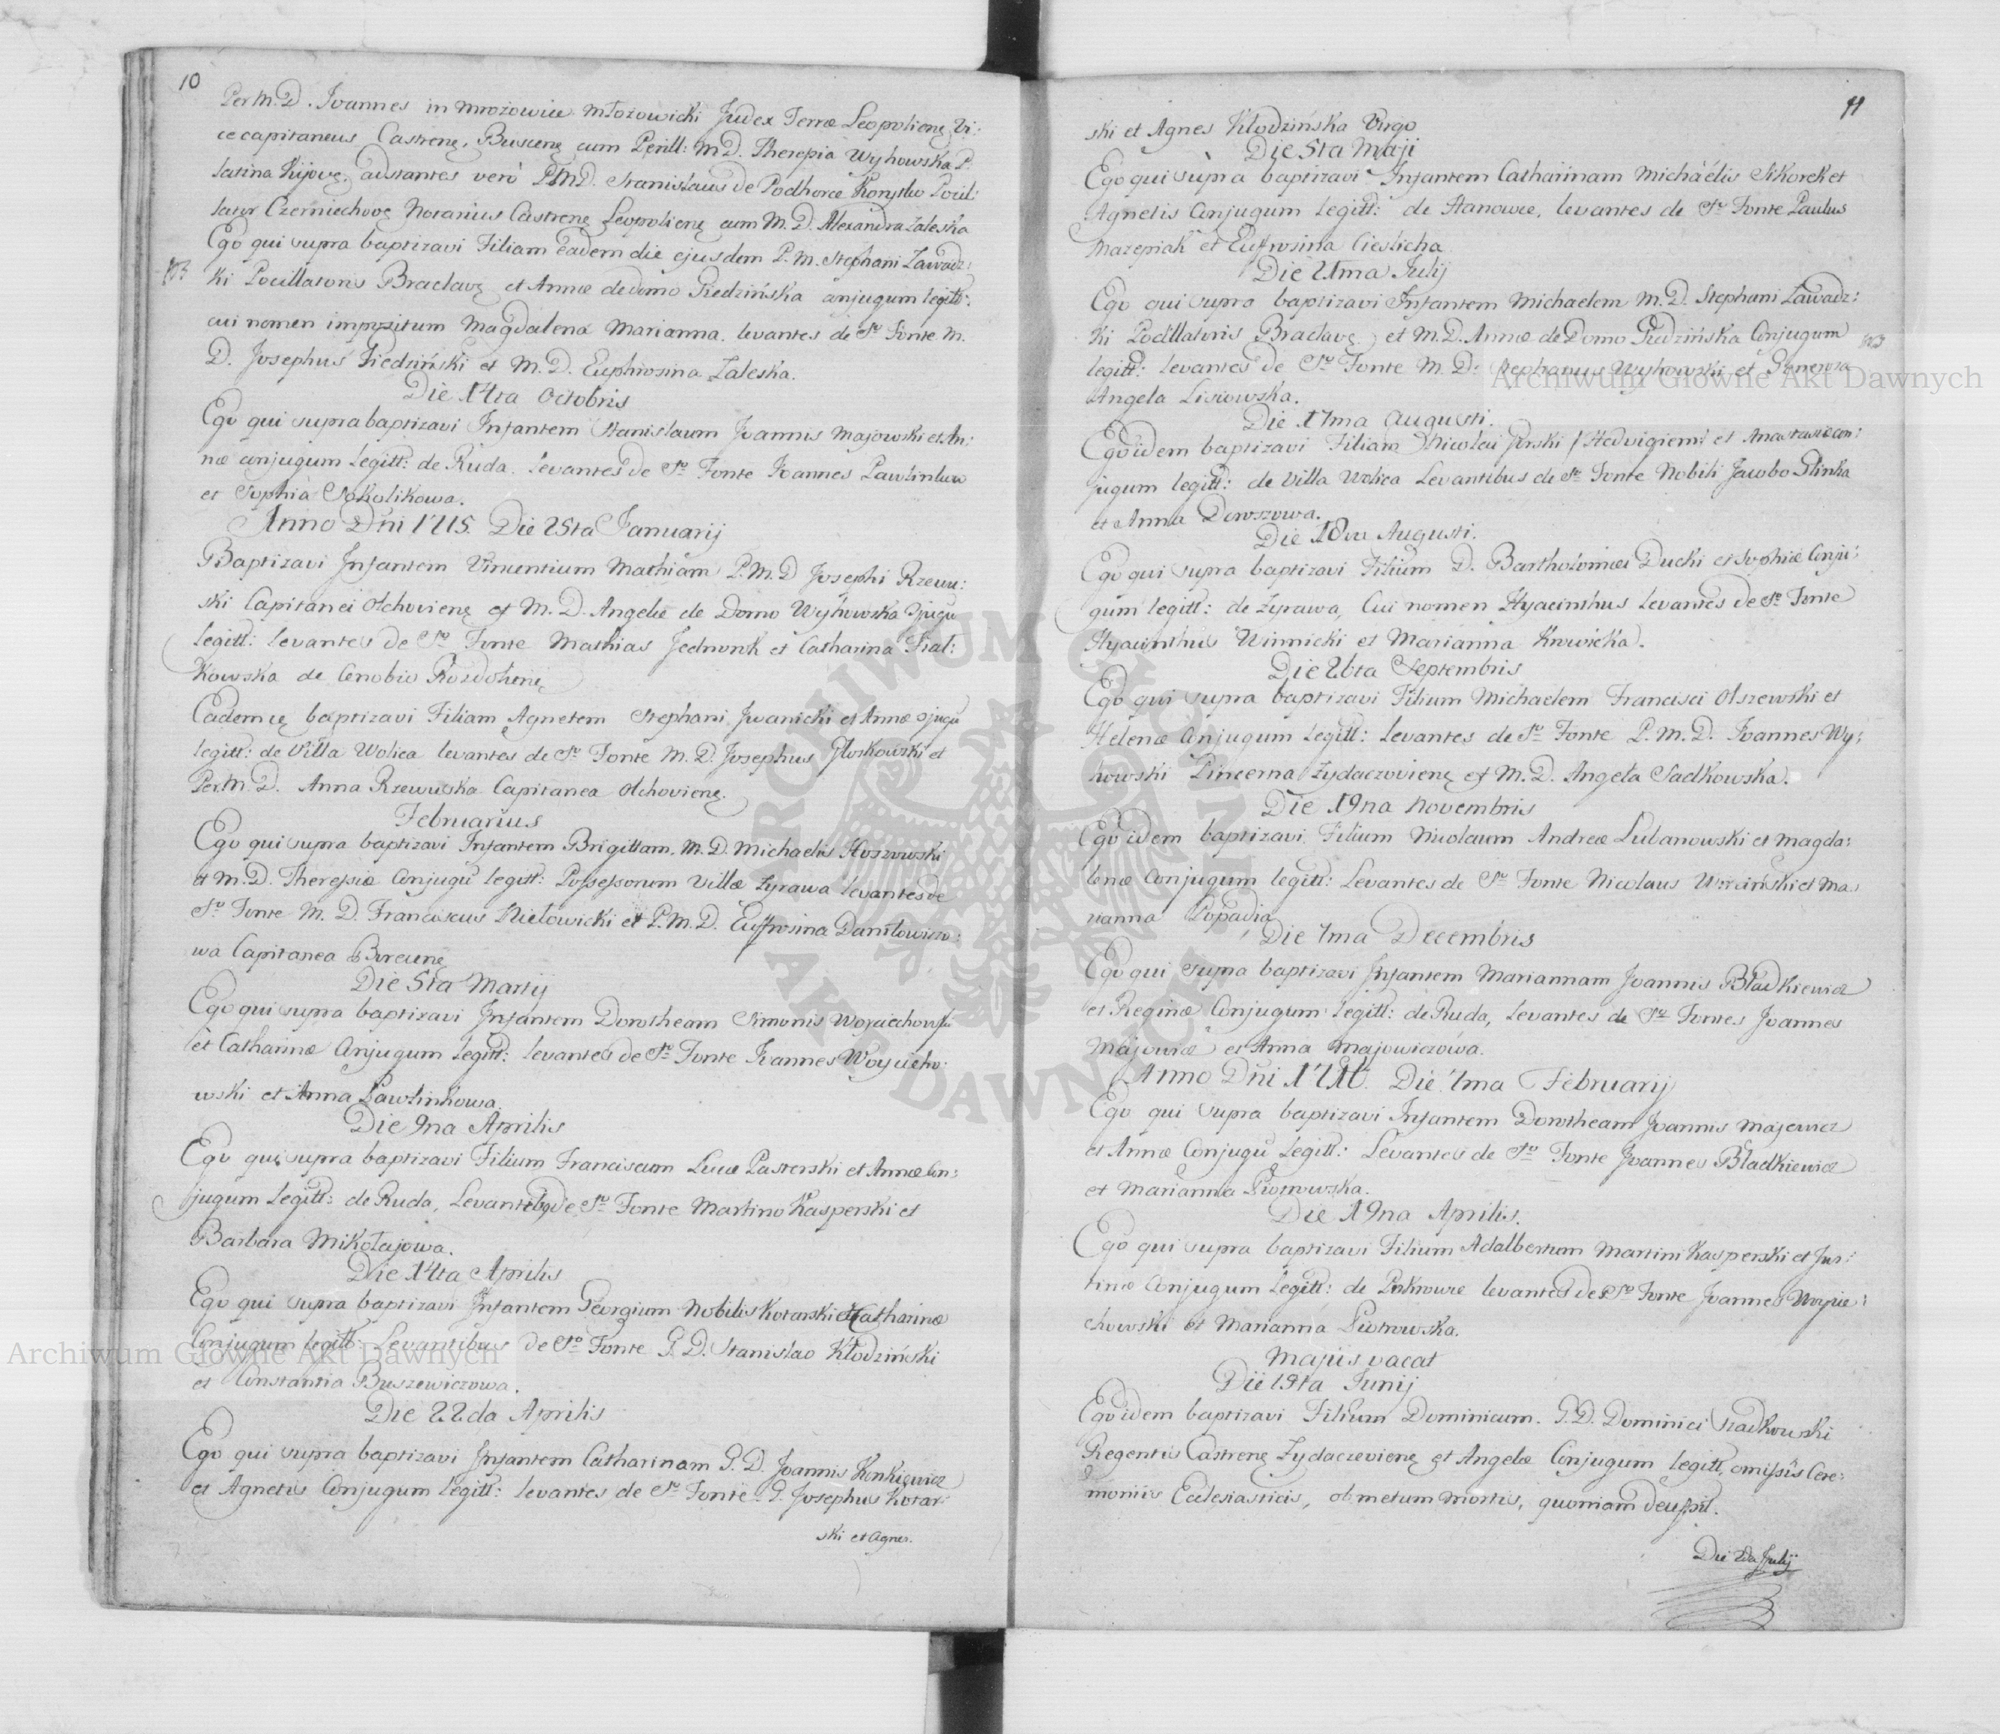 10
Per M. D. Joannes in Mrozowice Mrozowicki Judex Terræ Leopolienę Vi:
ce capitaneus Castrenę, Buscenę cum Perill: M D. Theresia Wyhowska P.
latina Kijovę, adstantes verò P.M.D. Stanislaus de Podhorce Pocil:
lator Czerniechovę Notarius Castrenę Leopolienę cum M. D. Alexandra Zaleska
Ego qui supra baptizavi Filiam eadem die ejusdem P. M. Stephani Zawadz:
ki Pocillatoris Braclavę et Annæ de domo Giedzińska conjugum legitt:
cui nomen impositum Magdalena Marianna. levantes de S:ro Fonte M.
D. Josephus Giedziński et M. D. Euphrosina Zaleska.
Die 14ta Octobris
Ego qui supra baptizavi Infantem Stanislaum Joannis Majowski et An:
næ conjugum legitt: de Ruda. levantes de S:ro Fonte Joannes
et Sophia Sokolikowa.
Anno Dñi 1715. Die 25ta Januarij
Baptizavi Infantem Vincentium Mathiam P. M. D Josephi Rzewu:
ski Capitanei Olchovienę et M. D. Angelæ de Domo Wyhowska
legitt: levantes de S:ro Fonte Mathias Jednorok et Catharina Fial:
kowska de Cenobio Rozdolienę
Eadem baptizavi Filiam Agnetem Stephani Iwanicki et Annæ
legitt: de Villa Wolica levantes de S:ro Fonte M. D. Josephus Głoskowski et
Per M. D. Anna Rzewuska Capitanea Olchovienę.
Februarius
Ego qui supra baptizavi Infantem Brigittam. M. D. Michaelis Hoszowski
et M. D. Theresiæ Conjugũ legitt: Possessorum Villæ Zyrawa levantes de
S:ro Fonte M. D. Franciscus Nielowicki et P. M. D. Euffrosina Daniłowiczo:
wa Capitanea Borcunę
Die 5ta Martij
Ego qui supra baptizavi Infantem Dorotheam Simonis Woyciechowski
et Catharinæ Conjugum legitt: levantes de S:ro Fonte Joannes Woyciecho:
wski et Anna Pawlinkowa.
Die 9na Aprilis
Ego qui supra baptizavi Filium Franciscum Lucæ Pasterski et Annæ Con:
jugum legitt: de Ruda, Levantibq de S:ro Fonte Martino Kasperski et
Barbara Mikołajowa.
Die 14ta Aprilis
Ego qui supra baptizavi Infantem Georgium Nobilis Kotarski et Catharinæ
Conjugum legitt: Levantibus de S:ro Fonte G. D. Stanislao Kłodziński
et Constantia Buszewiczowa.
Die 22da Aprilis
Ego qui supra baptizavi Infantem Catharinam G. D. Joannis Konkiewicz
et Agnetis Conjugum legitt: levantes de S:ro Fonte G. Josephus Kotar:
ski et Agnes.
11
ski et Agnes Kłodzińska Virgo
Die 5ta Maji
Ego qui supra baptizavi Infantem Catharinam Michäelis Sikorek et
Agnetis Conjugum legitt: de Stanowce, levantes de S:ro Fonte Paulus
Mazepiak et Euffrosina Cieslicha
Die 21ma Julij
Ego qui supra baptizavi Infantem Michaelem M. D. Stephani Zawadz:
ki Pocillatoris Braclavę et M. D. Annæ de Domo Giedzińska Conjugum
legitt: levantes de S:ro Fonte M. D. Stephanus Wyhowski et Generosa
Angela Lisiowska.
Die 17ma Augusti.
Ego idem baptizavi Filiam Nicolai Gorski Hedvigiem et Anastasiæ con:
jugum legitt: de Villa Wolica Levantibus de S:ro Fonte Nobili Jacobo Glinka
et Anna Doroszowa.
Die 18va Augusti.
Ego qui supra baptizavi Filium D. Bartholomæi Ducki et Sophiæ Conju:
gum legitt: de Zyrawa, Cui nomen Hyacinthus levantes de S:ro Fonte
Hyacinthus Winnicki et Marianna Knowicka.
Die 26ta Septembris
Ego qui supra baptizavi Filium Michaelem Francisci Olszewski et
Helenæ Conjugum legitt: levantes de S:ro Fonte P. M. D. Joannes Wy:
howski Pincerna Zydaczovienę et M. D. Angela Sadkowska.
Die 19na Novembris
Ego idem baptizavi Filium Nicolaum Andreæ Lubanowski et Magda:
lenæ Conjugum legitt: Levantes de S:ro Fonte Nicolaus et Ma
rianna Popadia
Die 7ma Decembris
Ego qui supra baptizavi Infantem Mariannam Joannis Bladkiewicz
et Reginæ Conjugum legitt: de Ruda, Levantes de S:ro Fontes Joannes
Majewicz et Anna Majowiczowa.
Anno Dñi 1716. Die 7ma Februarij
Ego qui supra baptizavi Infantem Dorotheam Joannis Majewicz
et Annæ Conjugũ legitt: Levantes de S:ro Fonte Joannes Bladkiewicz
et Marianna Piotrowska.
Die 19na Aprilis.
Ego qui supra baptizavi Filium Adalbertum Martini Kasperski et Jus:
tinæ Conjugum legitt: de Pokrowce levantes de S:ro Fonte Joannes Woycie:
chowski et Marianna Piotrowska.
Majus vacat
Die 19ta Junij
Ego idem baptizavi Filium Dominicum. G. D. Dominici Szadkowski
Regentis Castrenę Zydaczevienę et Angelæ Conjugum legitt, omissis Cere:
moniis Ecclesiasticis, ob metum mortis, quoniam
Die 2da Julij
Archiwum Główne Akt Dawnych
Archiwum Główne Akt Dawnych
ARCHIWUM GŁÓWNE AKT DAWNYCH